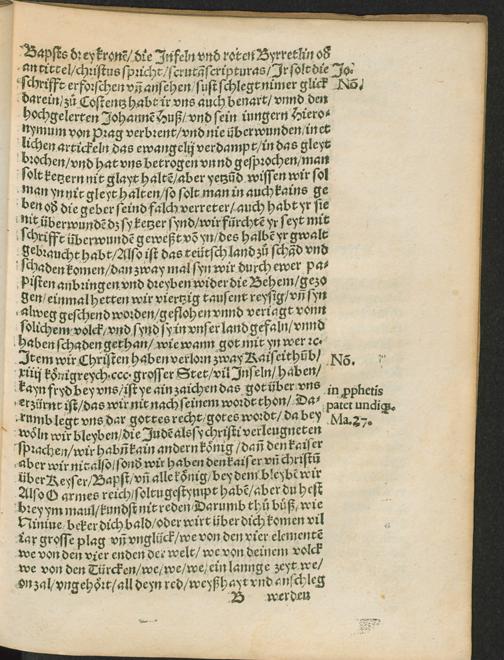 Bapsts dreykrone/ die Infeln vnd roten Byrretlin od
an tittel/ christus spricht/ scrutãscripturas/ Ir solt die Jo:
schrifft erforschen vñ ansehen/ sust schlegt nimer glick Nõ.
darein/ zů Costentz habt ir vns auch benart/ vnnd den
hochgelerten Johannẽ Huß/ vnd sein iungern Hiero-
nymum von Prag verbrent/ vnd nie überwunden/ in et
lichen artickeln das ewangelij verdampt/ in das gleyt
brochen/ vnd hat vns betrogen vnnd gesprochen/ man
solt ketzern nit glayt haltẽ/ aber yetzũd wissen wir sol
man yn nit gleyt halten/ so solt man in auch kains ge
ben od die geber seind falsch verreter/ auch habt yr sie
nit überwundẽ dz sy ketzer synd/ wir fürchtẽ yr seyt mit
schrifft überwundẽ geweßt võ yn/ des halbẽ yr gwalt
gebraucht habt/ Also ist das teütsch land zů schãd vnd
schaden komen/ dan zway mal syn wir durch ewer pa-
pisten anbringen vnd dreyben wider die Behem/ gezo
gen/ einmal hetten wir viertzig tausent reysig/ vñ syn
alweg geschend worden/ geflohen vnnd veriagt vonn
solichem volck/ vnd synd sy in vnser land gefaln/ vnnd
haben schaden gethan/ wie wann got mit yn wer ⁊c.
Item wir Christen haben verlorn zway Kaiserthüb/ Nõ.
xiiij königreych. ccc. grosser Stet/ vil Inseln/ haben/
kayn fryd bey vns/ ist ye ain zaichen das got über vns in ꝓphetis
erzürnt ist/ das wir nit nach seinem wordt thon/ Da- patet undiqꝫ.
rumb legt vns dar gottes recht/ gotes wordt/ da bey Ma.27.
wöln wir bleyben/ die Judẽ als sy christi verleugneten
sprachen/ wir habñ kain andern kőnig/ dañ den kaiser
aber wir nit also/ sonđ wir haben den kaiser vñ christũ
über Keyser/ Bapst/ vñ alle kőnig/ bey dem bleybẽ wir
Also O armes reich/ solt u gestympt habẽ/ aber du hest
brey ym maul/ kundst nit reden/ Darumb thů bůß/ wie
Niniue, beker dich bald/ oder wirt über dich komen vil
iar grosse plag vñ vnglück/ we von den vier elementẽ
we von den vier enden der welt/ we von deinem volck
we von den Türcken/ we/ we/ we/ ein lannge zeyt/ we/
on zal/ vngehört/ all deyn red/ weyßhayt vnd anschleg
B werden